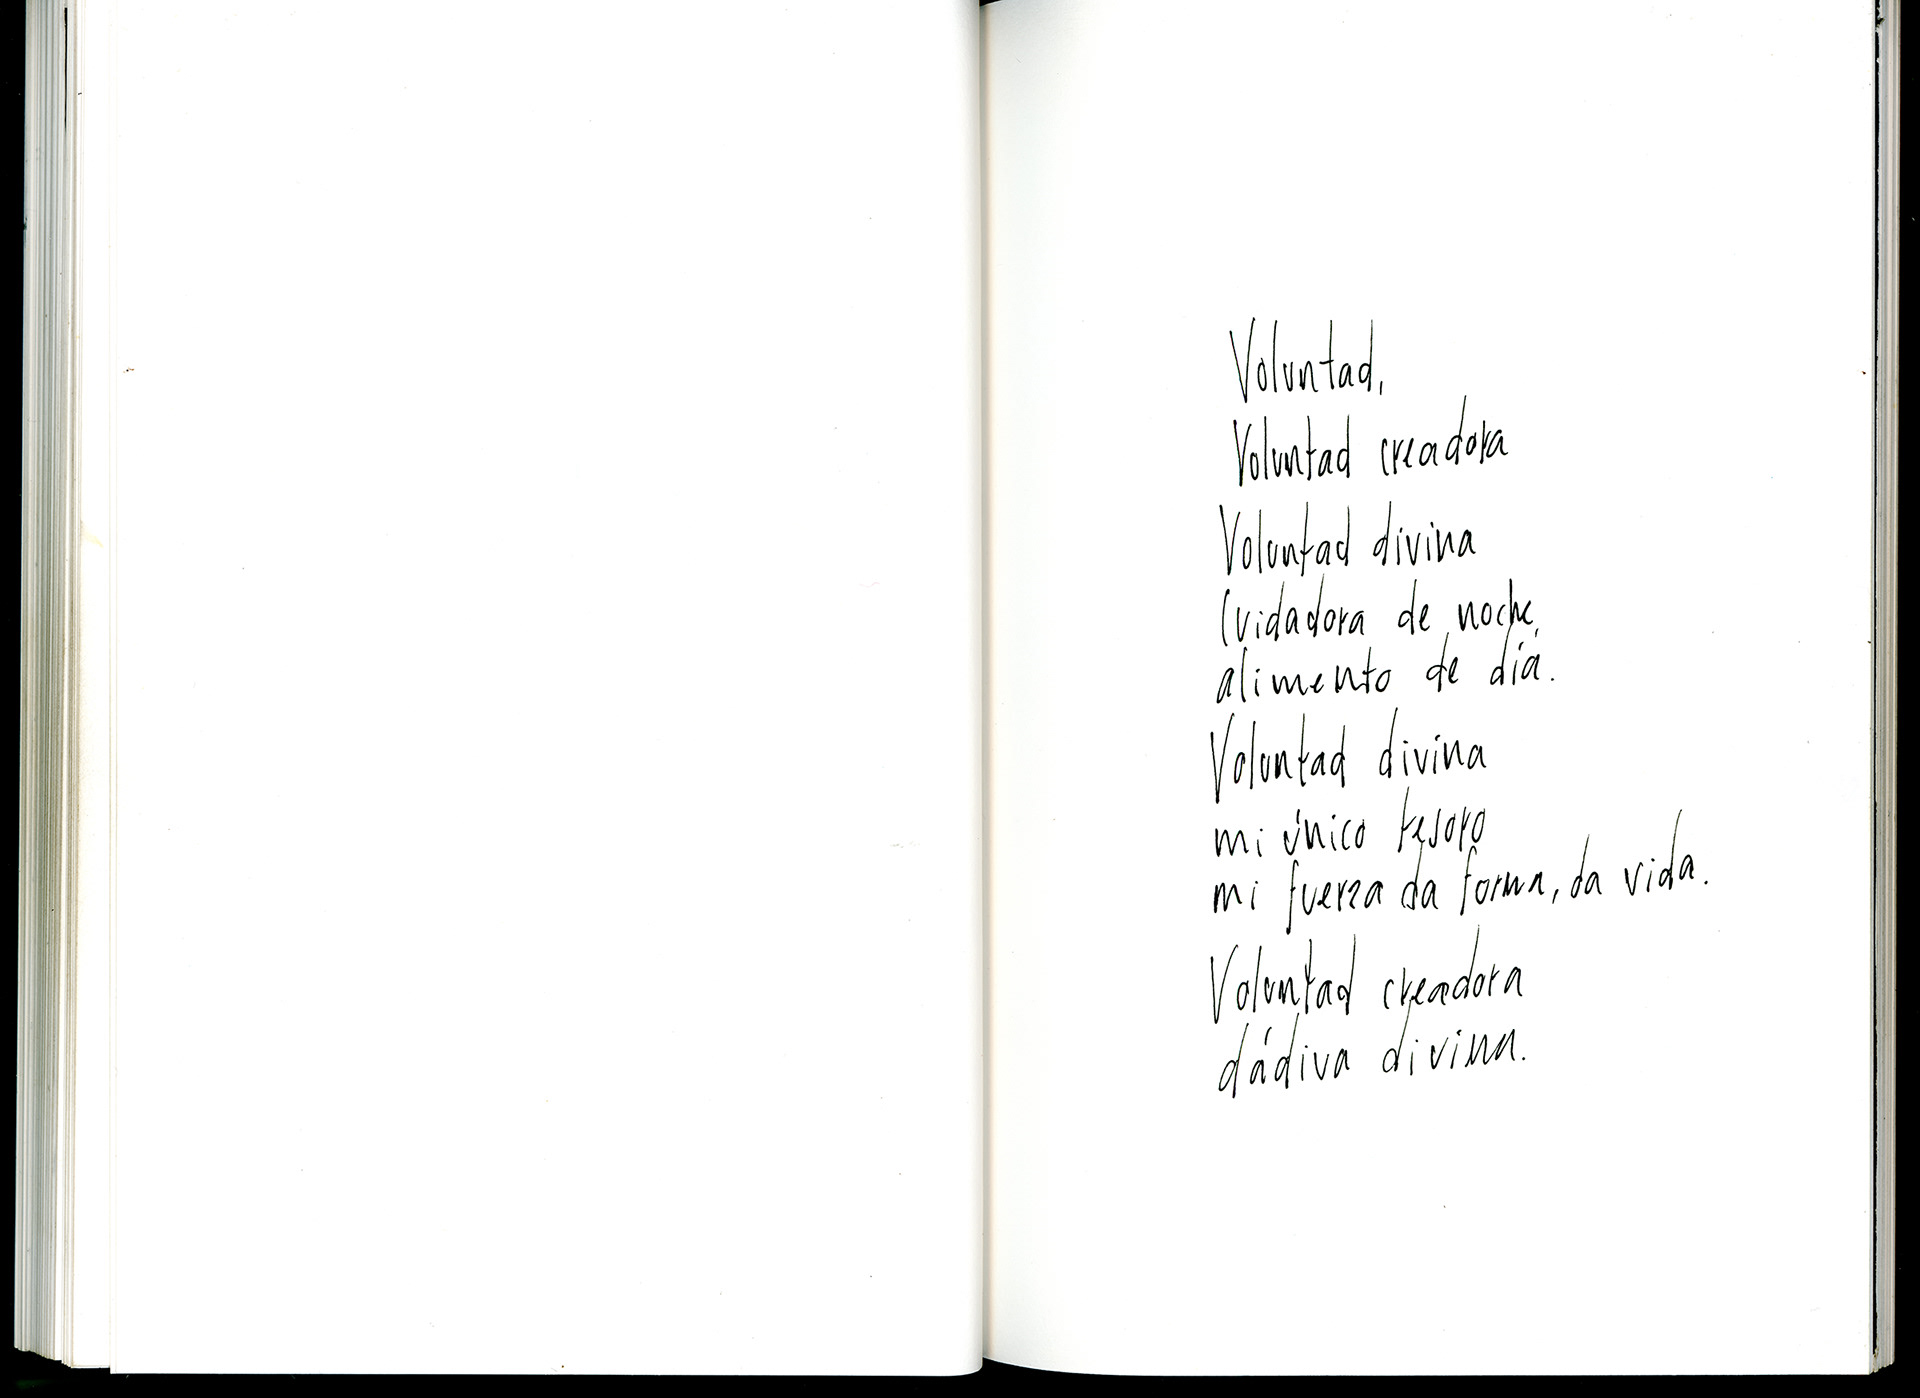 Voluntad,
Voluntad creadora
Voluntad divina
Cuidadora de noche,
alimento de día.
Voluntad divina
mi único tesoro
mi fuerza da forma, da vida.
Voluntad creadora
dádiva divina.